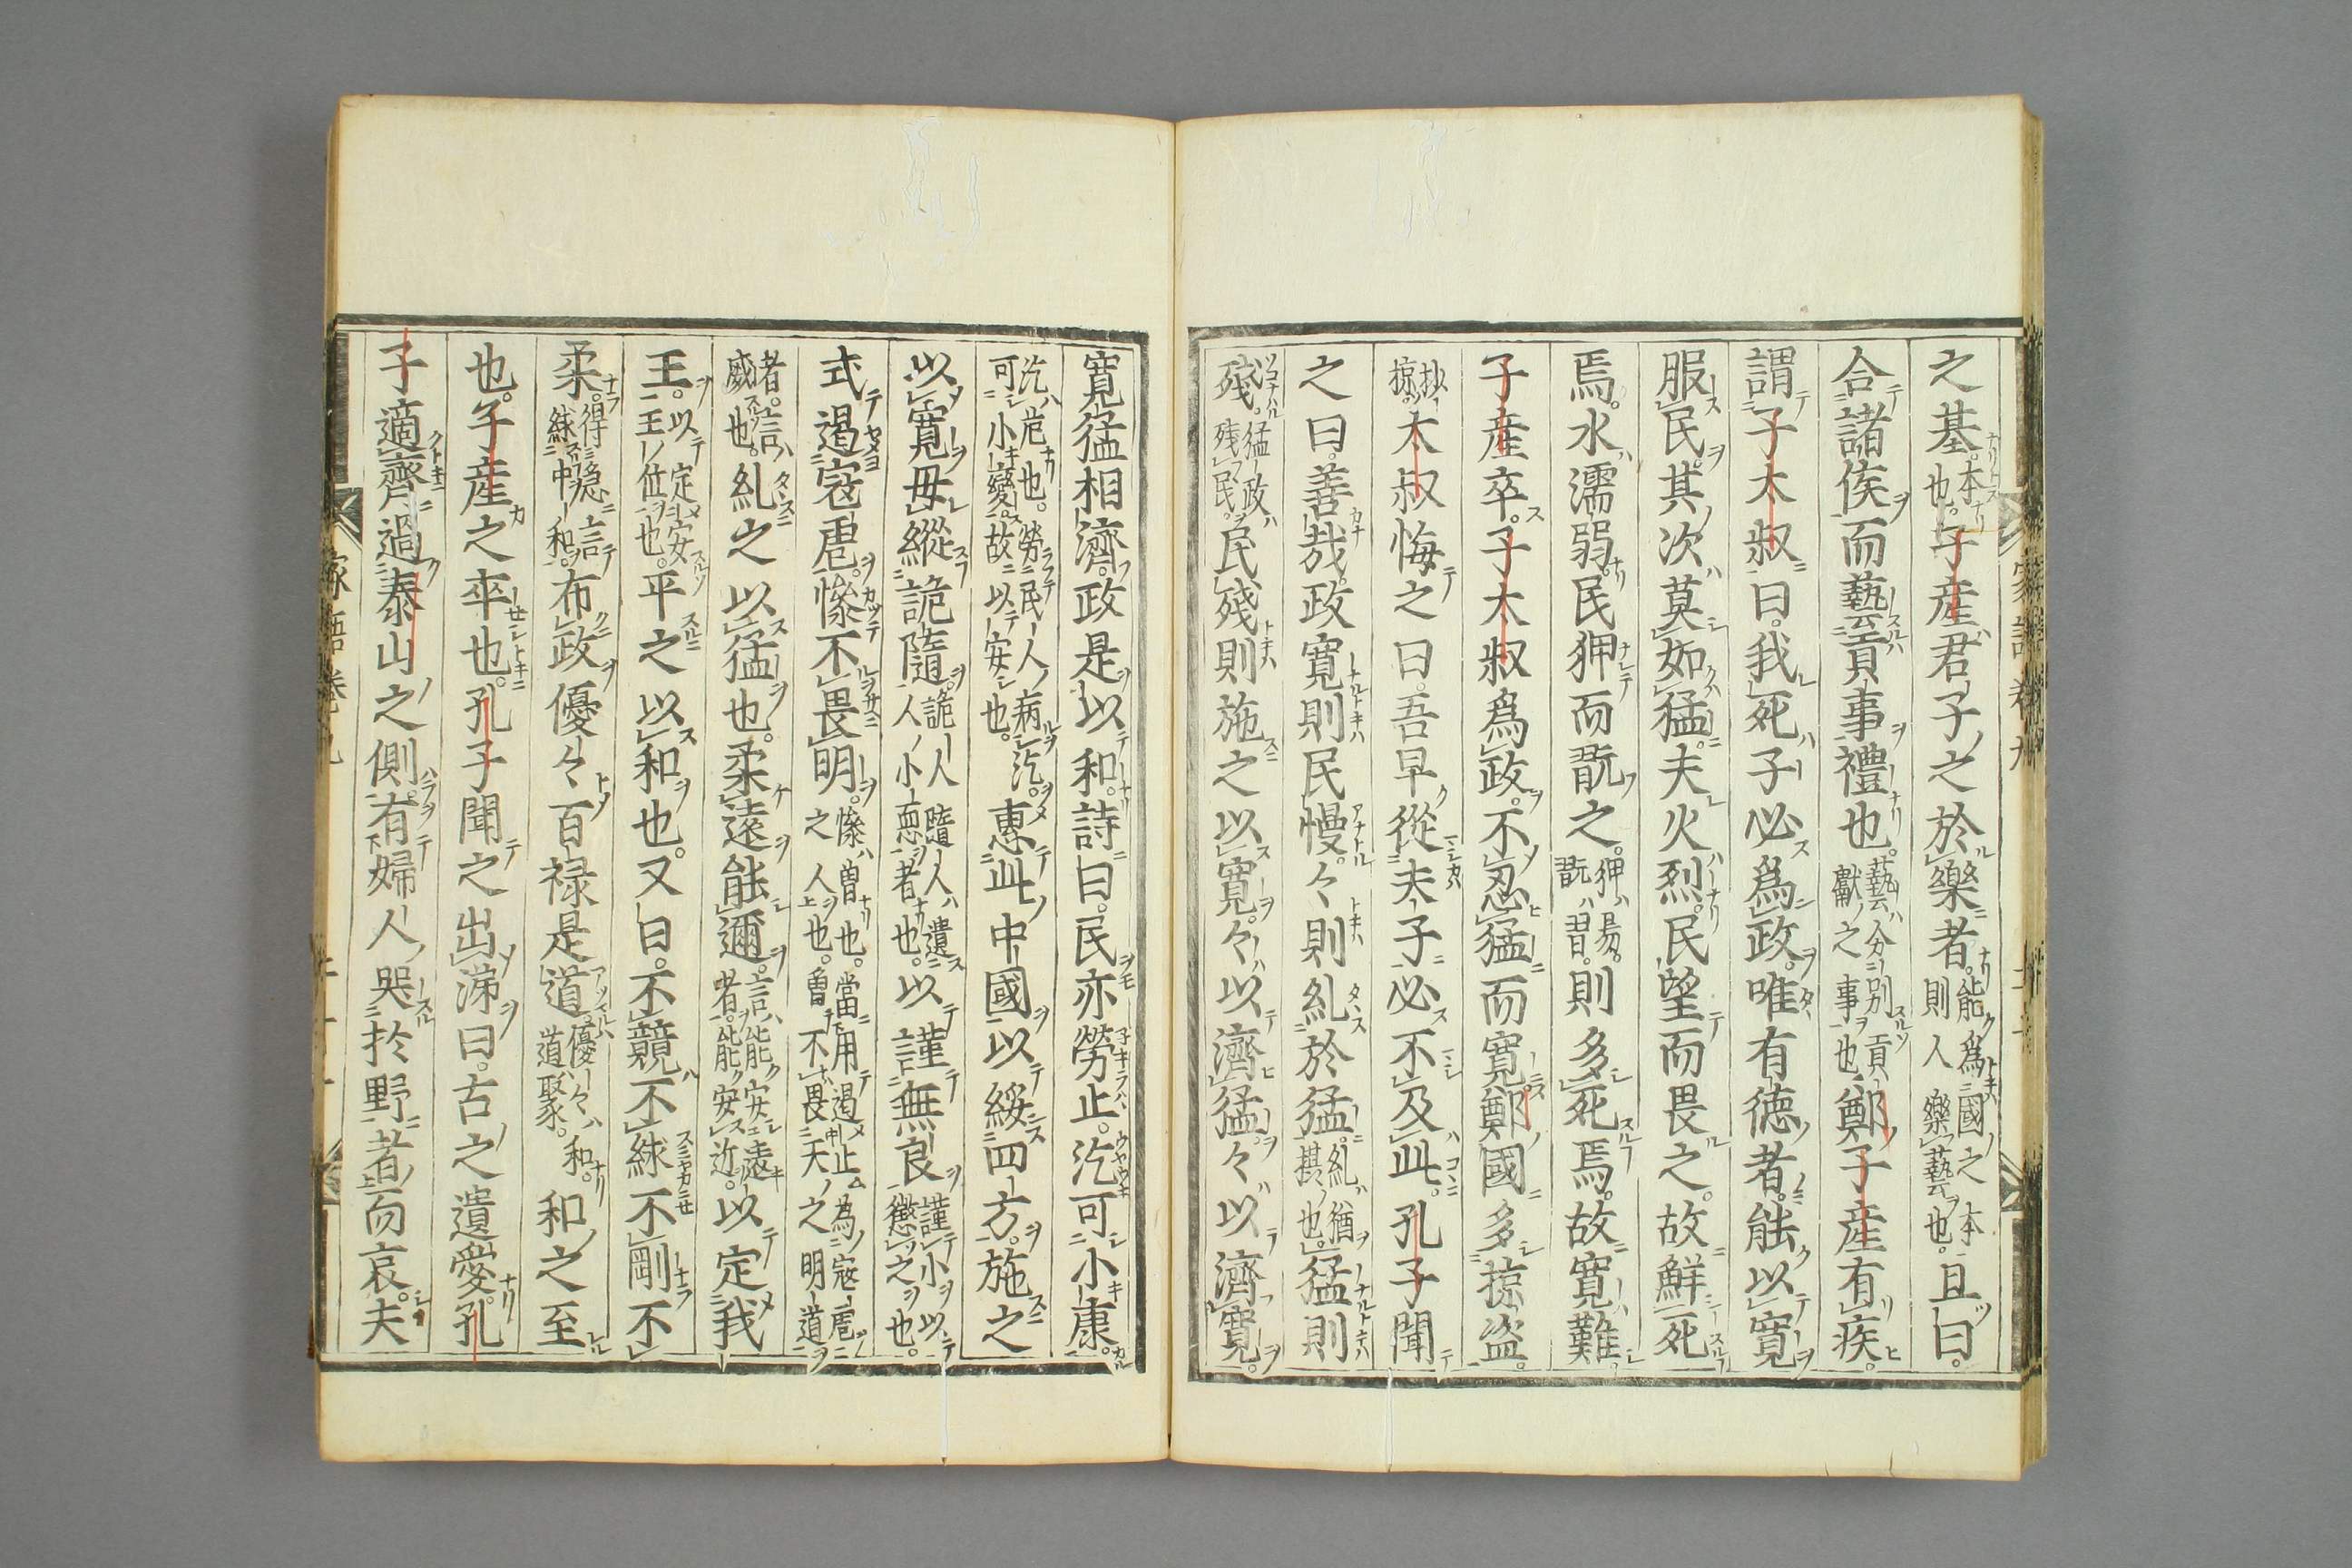 之基本也子産君子之於樂者能爲國之本則人樂藝也且曰
合諸侯而藝貢事禮也藝分別貢獻之事也鄭子産有疾
謂子太叔曰我死子必爲政唯有徳者能以寛
服民其次莫如猛夫火烈民望而畏之故鮮死
焉水濡弱民狎而翫之狎易翫習則多死焉故寛難
子産卒子太叔爲政不忍猛而寛鄭國多掠盜
抄掠太叔悔之曰吾早從夫子必不及此孔子聞
之曰善哉政寛則民慢々則糺於猛糺猶攅也猛則
殘猛政殘民民殘則施之以寛々以濟猛々以濟寛
寛猛相濟政是以和詩曰民亦勞止汔可小康
汔危也勞民人病汔可小變故以安也惠此中國以綏四方施之
以寛毋縱詭隨詭人隨人遺人小惡者也以謹無良謹小以懲之也
式遏寇虐慘不畏明慘曾也當用遏止爲寇虐之人也曾不畏天之明道
者言威也糺之以猛也柔遠能邇言能安遠者能安近以定我
王以定安王位也平之以和也又曰不競不絿不剛不
柔得急言絿中和布政優々百禄是遒優々和遒聚和之至
也子産之卒也孔子聞之出涕曰古之遺愛孔
子適齊過泰山之側有婦人哭於野者而哀夫
家語卷九